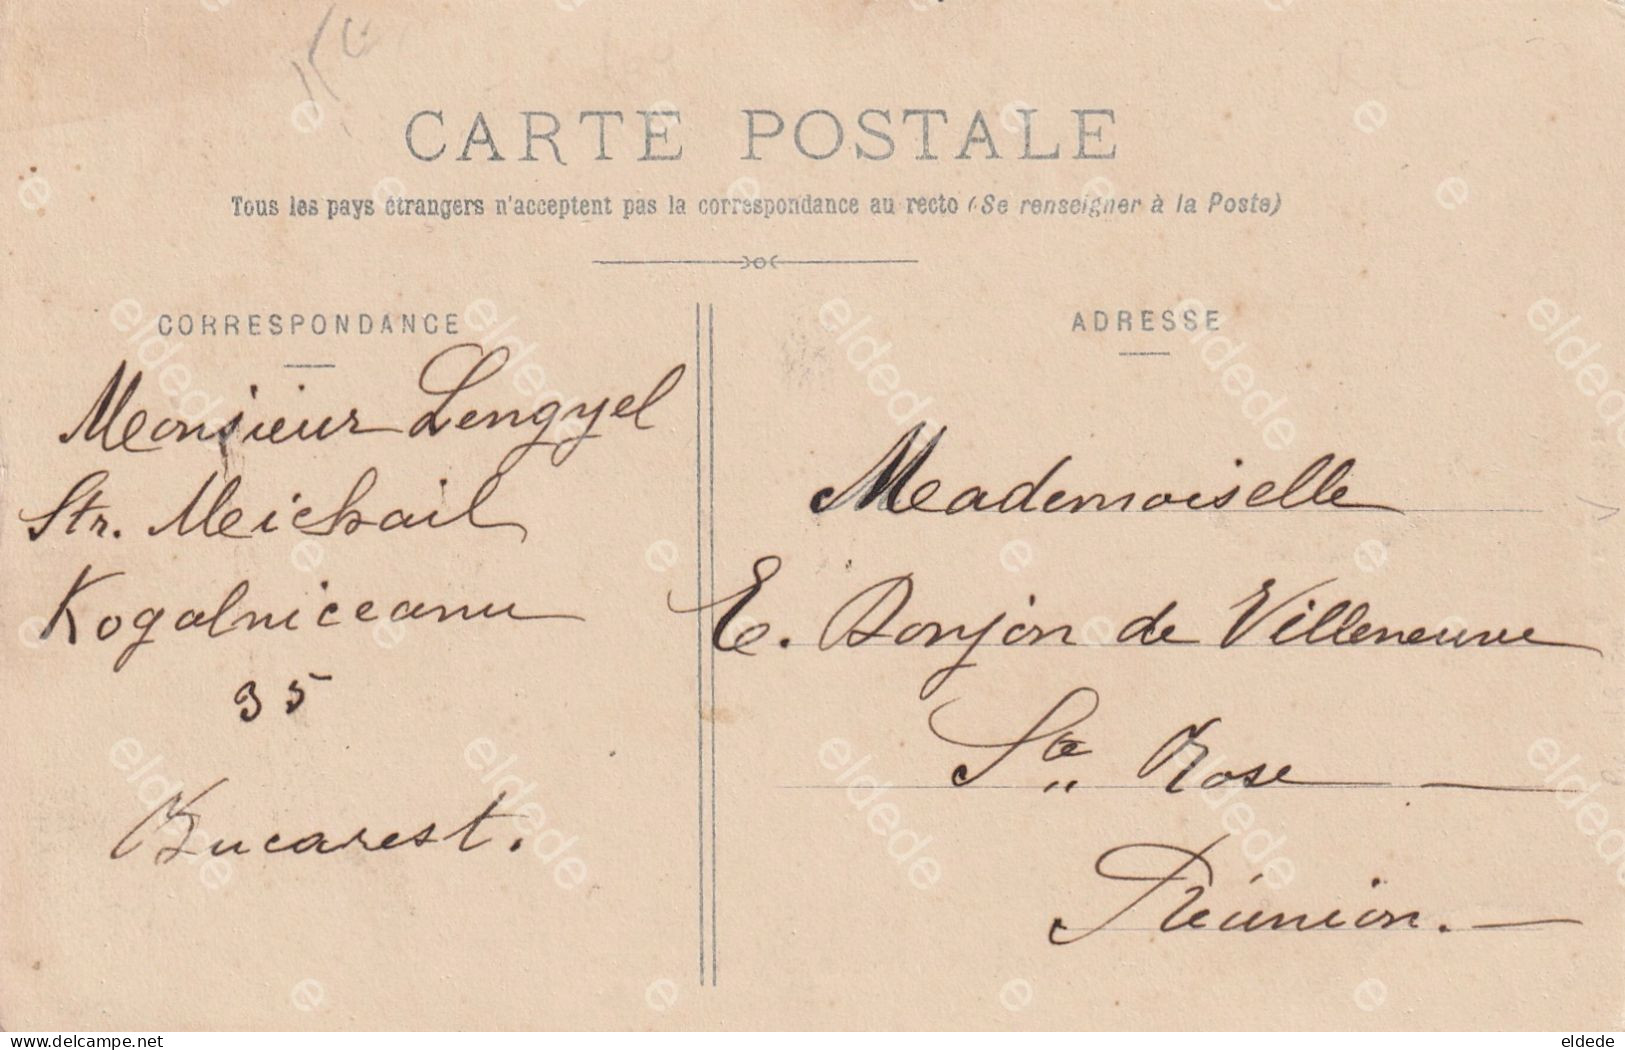 CARTE POSTALE
Tous les pays étrangers n'acceptent pas la correspondance au recto (Se renseigner à la Poste)
CORRESPONDANCE
Monsieur Lengyel
Str. Michail
Kogalniceanu
35
Bucarest.
ADRESSE
Mademoiselle
E. Donjon de Villeneuve
Ste Rose
Réunion.
eldede
delcampe.net
eldede